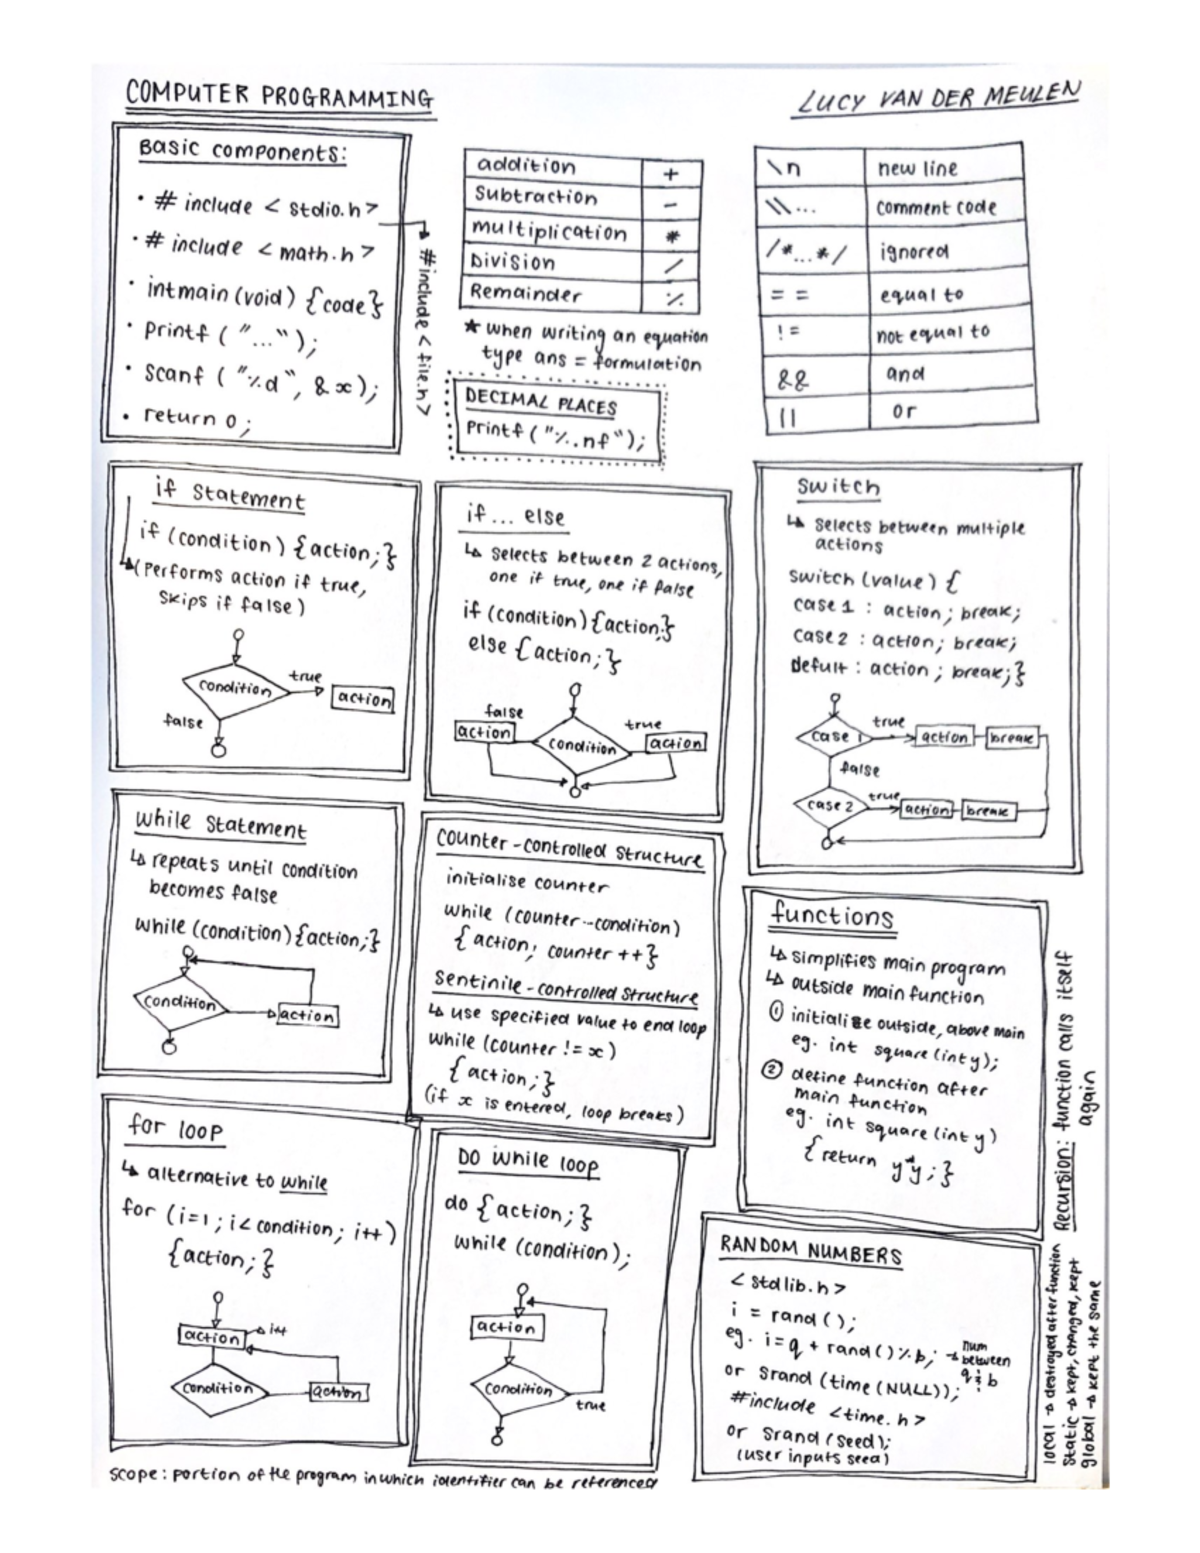 COMPUTER PROGRAMMING
LUCY VAN DER MEULEN
Basic components:
• # include < stdio.h >
• # include < math.h >
• intmain (void) {code}
• printf ( "..." );
• scanf ( "%d", & x );
• return 0 ;
#include < file.h >
addition +
Subtraction -
multiplication *
Division /
Remainder %
* when writing an equation
type ans = formulation
DECIMAL PLACES
printf ( "%.nf" );
\n new line
\\... comment code
/*...*/ ignored
= = equal to
!= not equal to
&& and
|| or
if Statement
if (condition) {action;}
(Performs action if true,
skips if false)
condition
true
action
false
if ... else
↳ selects between 2 actions,
one if true, one if false
if (condition) {action;}
else {action;}
false
true
action
condition
action
Switch
↳ selects between multiple
actions
switch (value) {
case 1 : action ; break;
case 2 : action; break;
defult : action ; break;}
case 1
true
action
break
false
case 2
true
action
break
while statement
↳ repeats until condition
becomes false
while (condition) {action;}
condition
action
counter-controlled structure
initialise counter
while (counter--condition)
{action; counter ++}
Sentinile-controlled structure
↳ use specified value to end loop
while (counter != x)
{action;}
(if x is entered, loop breaks)
functions
↳ simplifies main program
↳ outside main function
① initialise outside, above main
eg. int square (int y);
② define function after
main function
eg. int square (int y)
{ return y*y ; }
Recursion: function calls itself
again
for loop
↳ alternative to while
for (i=1 ; i< condition; i++)
{action;}
action
i++
condition
action
DO while loop
do {action;}
while (condition);
action
condition
true
RANDOM NUMBERS
< stdlib.h >
i = rand ();
eg. i = q + rand () % b; → num
between
q & b
or srand (time (NULL));
#include <time.h>
or srand (seed);
(user inputs seed)
local → destroyed after function
static → kept, changed, kept
global → kept the same
scope : portion of the program in which identifier can be referenced